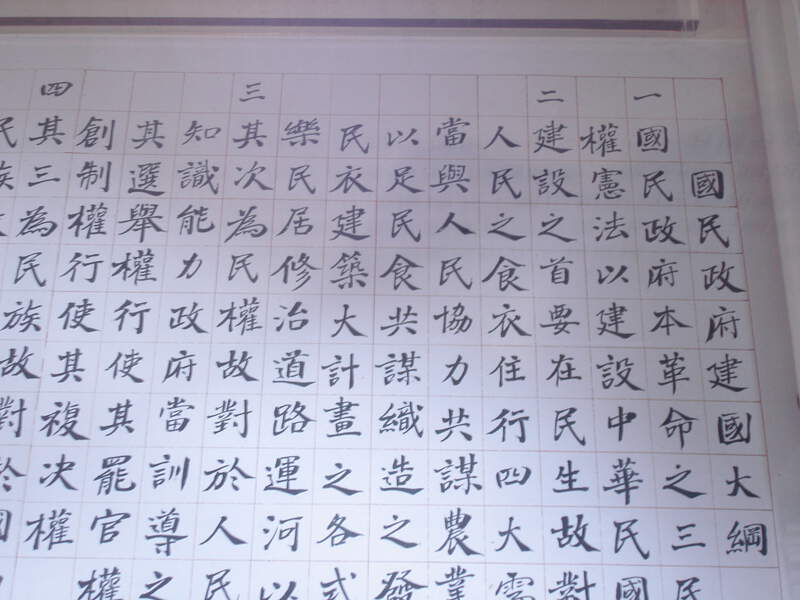 國民政府建國大綱
一國民政府本革命之三民
權憲法以建設中華民國
二建設之首要在民生故對
人民之食衣住行四大需
當與人民協力共謀農業
以足民食共謀織造之發
民衣建築大計畫之各式
樂民居修治道路運河以
三其次為民權故對於人民
知識能力政府當訓導之
其選舉權行使其罷官權
創制權行使其複决權
四其三為民族故對於國